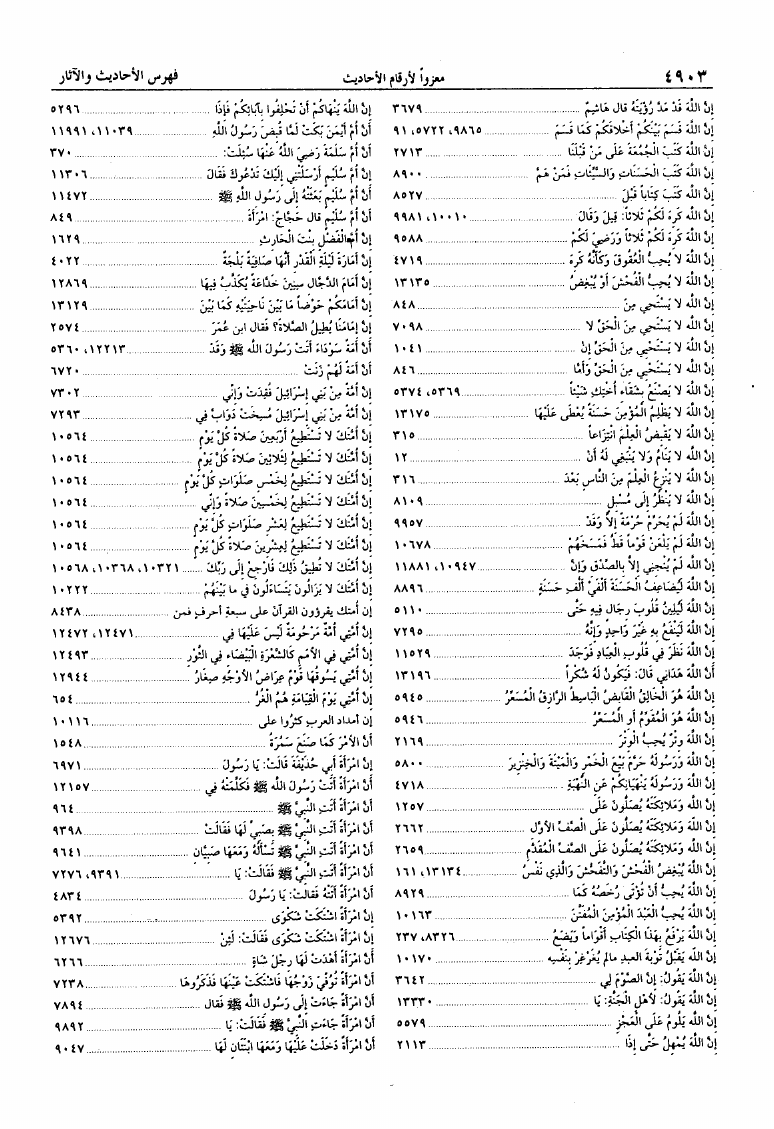 ٤٩٠٣ معزواً لأرقام الأحاديث فهرس الأحاديث والآثار
إنَّ اللهَ قَدْ مَدَّ رُؤْيَتَهُ قال هَاشِيمٌ ٣٦٧٩
إنَّ اللهَ قَسَمَ بَيْنَكُمْ أَخْلَاقَكُمْ كَمَا قَسَمَ ٩٨٦٥، ٥٧٢٢، ٩١
إنَّ اللهَ كَتَبَ الْجُمُعَةَ عَلَى مَنْ قَبْلَنَا ٢٧١٣
إنَّ اللهَ كَتَبَ الْحَسَنَاتِ وَالسَّيِّئَاتِ فَمَنْ هَمَّ ٨٩٠٠
إنَّ اللهَ كَتَبَ كِتَاباً قَبْلَ ٨٥٢٧
إنَّ اللهَ كَرِهَ لَكُمْ ثَلاثاً: قِيلَ وَقَالَ ١٠٠١٠، ٩٩٨١
إنَّ اللهَ كَرِهَ لَكُمْ ثَلاثاً وَرَضِيَ لَكُمْ ٩٥٨٨
إنَّ اللهَ لا يُحِبُّ الْعُقُوقَ وَكَأَنَّهُ كَرِهَ ٤٧١٩
إنَّ اللهَ لا يُحِبُّ الْفُحْشَ أَوْ يُبْغِضُ ١٣١٣٥
إنَّ اللهَ لا يَسْتَحِي مِنَ ٨٤٨
إنَّ اللهَ لا يَسْتَحِي مِنَ الْحَقِّ لا ٧٠٩٨
إنَّ اللهَ لا يَسْتَحْيِي مِنَ الْحَقِّ إن ١٠٤١
إنَّ اللهَ لا يَسْتَحْيِي مِنَ الْحَقِّ وَأَمَّا ٨٤٦
إنَّ اللهَ لا يَصْنَعُ بِشَقَاءِ أُخْتِكِ شَيْئاً ٥٣٦٩، ٥٣٧٤
إنَّ اللهَ لا يَظْلِمُ الْمُؤْمِنَ حَسَنَةً يُعْطَى عَلَيْهَا ١٣١٧٥
إنَّ اللهَ لا يَقْبِضُ الْعِلْمَ انْتِزَاعاً ٣١٥
إنَّ اللهَ لا يَنَامُ وَلا يَنْبَغِي لَهُ أَنْ ١٢
إنَّ اللهَ لا يَنْزِعُ الْعِلْمَ مِنَ النَّاسِ بَعْدَ ٣١٦
إنَّ اللهَ لا يَنْظُرُ إِلَى مُسْبِلٍ ٨١٠٩
إنَّ اللهَ لَمْ يُحَرِّمْ حُرْمَةً إِلاَّ وَقَدْ ٩٩٥٧
إنَّ اللهَ لَمْ يَلْعَنْ قَوْماً قَطُّ فَمَسَخَهُمْ ١٠٦٧٨
إنَّ اللهَ لَمْ يُنْجِنِي إِلاَّ بِالصِّدْقِ وَإِنَّ ١٠٩٤٧، ١١٨٨١
إنَّ اللهَ لَيُضَاعِفُ الْحَسَنَةَ أَلْفَيْ أَلْفِ حَسَنَةٍ ٨٨٩٦
إنَّ اللهَ لَيُلِينُ قُلُوبَ رِجَالٍ فِيهِ حَتَّى ٥١١٠
إنَّ اللهَ لَيَنْفَعُ بِهِ غَيْرَ وَاحِدٍ وَإِنَّهُ ٧٢٩٥
إنَّ اللهَ نَظَرَ فِي قُلُوبِ الْعِبَادِ فَوَجَدَ ١١٥٢٩
أَنَّ اللهَ هَدَانِي قَالَ: فَيَكُونُ لَهُ شُكْراً ١٣١٩٦
إنَّ اللهَ هُوَ الْخَالِقُ الْقَابِضُ الْبَاسِطُ الرَّازِقُ الْمُسَعِّرُ ٥٩٤٥
إنَّ اللهَ هُوَ الْمُقَوِّمُ أَوِ الْمُسَعِّرُ ٥٩٤٦
إنَّ اللهَ وِتْرٌ يُحِبُّ الْوِتْرَ ٢١٦٩
إنَّ اللهَ وَرَسُولَهُ حَرَّمَ بَيْعَ الْخَمْرِ وَالْمَيْتَةَ وَالْخِنْزِيرَ ٥٨٠٠
إنَّ اللهَ وَرَسُولَهُ يَنْهَيَانِكُمْ عَنِ النُّهْبَةِ ٤٧١٨
إنَّ اللهَ وَمَلائِكَتَهُ يُصَلُّونَ عَلَى ١٢٥٧
إنَّ اللهَ وَمَلائِكَتَهُ يُصَلُّونَ عَلَى الصَّفِّ الأَوَّلِ ٢٦٦٢
إنَّ اللهَ وَمَلائِكَتَهُ يُصَلُّونَ عَلَى الصَّفِّ الْمُقَدَّمِ ٢٦٥٩
إنَّ اللهَ يُبْغِضُ الْفُحْشَ وَالتَّفَحُّشَ وَالَّذِي نَفْسُ ١٣١٣٤، ١٦١
إنَّ اللهَ يُحِبُّ أَنْ تُؤْتَى رُخَصُهُ كَمَا ٨٩٢٩
إنَّ اللهَ يُحِبُّ الْعَبْدَ الْمُؤْمِنَ الْمُفَتَّنَ ١٠١٦٣
إنَّ اللهَ يَرْفَعُ بِهَذَا الْكِتَابِ أَقْوَاماً وَيَضَعُ ٨٣٢٦، ٢٣٧
إنَّ اللهَ يَقْبَلُ تَوْبَةَ العبدِ مالم يُغَرْغِرْ بِنَفْسِهِ ١٠١٧٠
إنَّ اللهَ يَقُولُ: إِنَّ الصَّوْمَ لِي ٣٦٤٢
إنَّ اللهَ يَقُولُ: لأَهْلِ الْجَنَّةِ: يَا ١٣٣٣٠
إنَّ اللهَ يَلُومُ عَلَى الْعَجْزِ ٥٥٧٩
إنَّ اللهَ يُمْهِلُ حَتَّى إِذَا ٢١١٣
إنَّ اللهَ يَنْهَاكُمْ أَنْ تَحْلِفُوا بِآبَائِكُمْ فَإِذَا ٥٢٩٦
أَنَّ أُمَّ أَيْمَنَ بَكَتْ لَمَّا قُبِضَ رَسُولُ اللهِ ١١٠٣٩، ١١٩٩١
أَنَّ أُمَّ سَلَمَةَ رَضِيَ اللهُ عَنْهَا سُئِلَتْ: ٣٧٠
إنَّ أُمَّ سُلَيْمٍ أَرْسَلَتْنِي إِلَيْكَ تَدْعُوكَ فَقَالَ ١١٣٠٦
أَنَّ أُمَّ سُلَيْمٍ بَعَثَتْهُ إِلَى رَسُولِ اللهِ ﷺ ١١٤٧٢
أَنَّ أُمَّ سُلَيْمٍ قال حَجَّاجٌ: امْرَأَةَ ٨٤٩
إنَّ أُمَّ الْفَضْلِ بِنْتَ الْحَارِثِ ١٦٢٩
إنَّ أَمَارَةَ لَيْلَةِ الْقَدْرِ أَنَّهَا صَافِيَةٌ بَلْجَةٌ ٤٠٢٢
إنَّ أَمَامَ الدَّجَّالِ سِنِينَ خَدَّاعَةً يُكَذَّبُ فِيهَا ١٢٨٦٩
إنَّ أَمَامَكُمْ حَوْضاً مَا بَيْنَ نَاحِيَتَيْهِ كَمَا بَيْنَ ١٣١٢٩
إنَّ إِمَامَنَا يُطِيلُ الصَّلاةَ؟ فَقال ابن عُمَرَ ٢٥٧٤
أَنَّ أَمَةً سَوْدَاءَ أَتَتْ رَسُولَ اللهِ ﷺ وَقَدْ ١٢٢١٣، ٥٣٦٠
أَنَّ أَمَةً لَهُمْ زَنَتْ ٦٧٢٠
إنَّ أُمَّةً مِنْ بَنِي إِسْرَائِيلَ فُقِدَتْ وَإِنِّي ٧٣٠٢
إنَّ أُمَّةً مِنْ بَنِي إِسْرَائِيلَ مُسِخَتْ دَوَابَّ فِي ٧٢٩٣
إنَّ أُمَّتَكَ لا تَسْتَطِيعُ أَرْبَعِينَ صَلاةً كُلَّ يَوْمٍ ١٠٥٦٤
إنَّ أُمَّتَكَ لا تَسْتَطِيعُ لِثَلاثِينَ صَلاةً كُلَّ يَوْمٍ ١٠٥٦٤
إنَّ أُمَّتَكَ لا تَسْتَطِيعُ لِخَمْسِ صَلَوَاتٍ كُلَّ يَوْمٍ ١٠٥٦٤
إنَّ أُمَّتَكَ لا تَسْتَطِيعُ لِخَمْسِينَ صَلاةً وَإِنِّي ١٠٥٦٤
إنَّ أُمَّتَكَ لا تَسْتَطِيعُ لِعَشْرِ صَلَوَاتٍ كُلَّ يَوْمٍ ١٠٥٦٤
إنَّ أُمَّتَكَ لا تَسْتَطِيعُ لِعِشْرِينَ صَلاةً كُلَّ يَوْمٍ ١٠٥٦٤
إنَّ أُمَّتَكَ لا تُطِيقُ ذَلِكَ فَارْجِعْ إِلَى رَبِّكَ ١٠٣٢١، ١٠٣٦٨، ١٠٥٦٨
إنَّ أُمَّتَكَ لا يَزَالُونَ يَتَسَاءَلُونَ فِي مَا بَيْنَهُمْ ١٠٢٢٢
إن أمتك يقرؤون القرآن على سبعة أحرف فمن ٨٤٣٨
إنَّ أُمَّتِي أُمَّةٌ مَرْحُومَةٌ لَيْسَ عَلَيْهَا فِي ١٢٤٧١، ١٢٤٧٢
إنَّ أُمَّتِي فِي الأُمَمِ كَالشَّعْرَةِ الْبَيْضَاءِ فِي الثَّوْرِ ١٢٤٩٣
إنَّ أُمَّتِي يَسُوقُهَا قَوْمٌ عِرَاضُ الأَوْجُهِ صِغَارُ ١٢٩٤٤
إنَّ أُمَّتِي يَوْمَ الْقِيَامَةِ هُمُ الْغُرُّ ٦٥٤
إن أمداد العرب كثروا على ١٠١١٦
أَنَّ الأَمْرَ كَمَا صَنَعَ سَمُرَةُ ١٥٤٨
أَنَّ امْرَأَةَ أَبِي حُذَيْفَةَ قَالَتْ: يَا رَسُولَ ٦٩٧١
أَنَّ امْرَأَةً أَتَتْ رَسُولَ اللهِ ﷺ فَكَلَّمَتْهُ فِي ١٢١٥٧
أَنَّ امْرَأَةً أَتَتِ النَّبِيَّ ﷺ ٩٦٤
أَنَّ امْرَأَةً أَتَتِ النَّبِيَّ ﷺ بِصَبِيٍّ لَهَا فَقَالَتْ ٩٣٩٨
أَنَّ امْرَأَةً أَتَتِ النَّبِيَّ ﷺ تَسْأَلُهُ وَمَعَهَا صَبِيَّانِ ٩٦٤١
أَنَّ امْرَأَةً أَتَتِ النَّبِيَّ ﷺ فَقَالَتْ: يَا ٩٣٩١، ٧٢٧٦
أَنَّ امْرَأَةً أَتَتْهُ فَقالَتْ: يَا رَسُولَ ٤٨٣٤
إنَّ امْرَأَةً اشْتَكَتْ شَكْوَى ٥٣٩٢
أَنَّ امْرَأَةً اشْتَكَتْ شَكْوَى فَقَالَتْ: لَئِنْ ١٢٦٧٦
أَنَّ امْرَأَةً أَهْدَتْ لَهَا رِجْلَ شَاةٍ ٦٢٦٦
أَنَّ امْرَأَةً تُوُفِّيَ زَوْجُهَا فَاشْتَكَتْ عَيْنَهَا فَذَكَرُوهَا ٧٢٣٨
أَنَّ امْرَأَةً جَاءَتْ إِلَى رَسُولِ اللهِ ﷺ فَقال ٧٨٩٤
أَنَّ امْرَأَةً جَاءَتِ النَّبِيَّ ﷺ فَقَالَتْ: يَا ٩٨٩٢
أَنَّ امْرَأَةً دَخَلَتْ عَلَيْهَا وَمَعَهَا ابْنَتَانِ لَهَا ٩٠٤٧